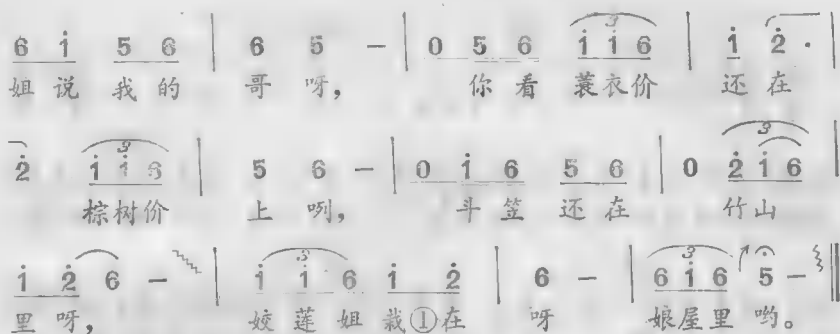 6 i̇ 5 6 | 6 5 — | 0 5 6 i̇ i̇ 6 | i̇ 2̇ · |
3
姐说我的 哥呀， 你看蓑衣价 还在
2̇ i̇ i̇ 6 | 5 6 — | 0 i̇ 6 5 6 | 0 2̇ i̇ 6 |
3 3
棕树价 上咧， 斗笠还在 竹山
i̇ 2̇ 6 — i̇ i̇ 6 i̇ 2̇ | 6 — | 6 i̇ 6 5̇ —
3 3
里呀， 姣莲姐栽①在 呀 娘屋里哟。